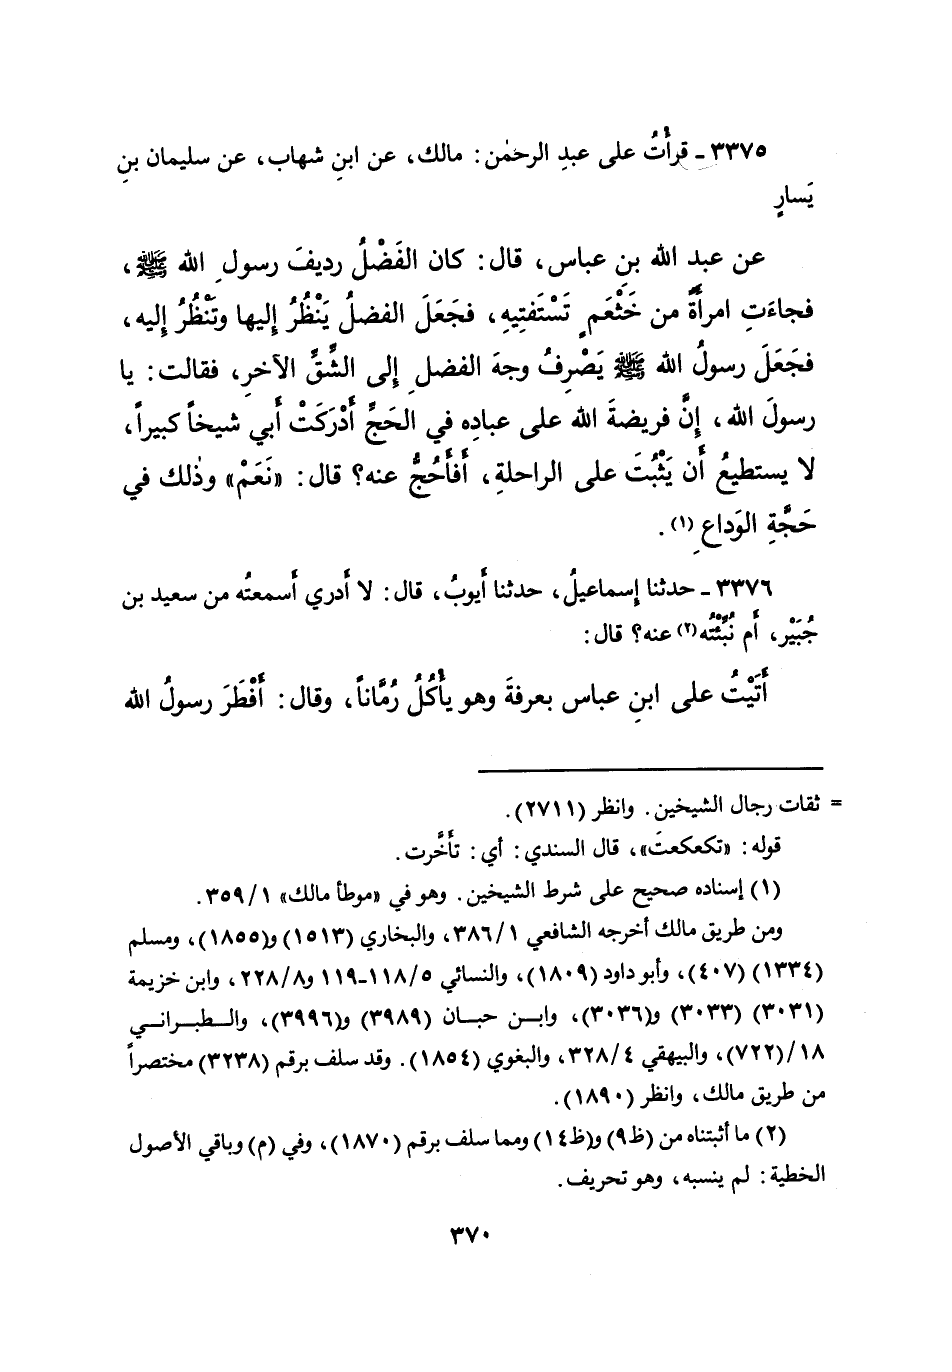 ٣٣٧٥ ـ قرأْتُ على عبدِ الرحمٰن: مالك، عن ابنِ شهاب، عن سليمان بنِ
يَسارٍ
عن عبدِ الله بنِ عباس، قال: كان الفَضْلُ رديفَ رسولِ الله ﷺ،
فجاءَتِ امرأةٌ من خَثْعَمٍ تَسْتَفتِيهِ، فجَعَلَ الفضلُ يَنْظُرُ إِليها وتَنْظُرُ إِليه،
فجَعَلَ رسولُ الله ﷺ يَصْرِفُ وجهَ الفضلِ إِلى الشِّقِّ الآخرِ، فقالت: يا
رسولَ الله، إِنَّ فريضةَ الله على عباده في الحَجِّ أَدْرَكَتْ أَبي شيخاً كبيراً،
لا يستطيعُ أَن يَثْبُتَ على الراحلةِ، أَفأَحُجُّ عنه؟ قال: «نَعَمْ» وذٰلك في
حَجَّةِ الوَداعِ (١).
٣٣٧٦ ـ حدثنا إِسماعيلُ، حدثنا أَيوبُ، قال: لا أَدري أَسمعتُه من سعيد بن
جُبَيْر، أَم نُبِّئْتُه(٢) عنه؟ قال:
أَتَيْتُ على ابنِ عباس بعرفةَ وهو يأْكُلُ رُمَّاناً، وقال: أَفْطَرَ رسولُ الله
= ثقات رجال الشيخين. وانظر (٢٧١١).
قوله: «تكعكعتَ»، قال السندي: أي: تأَخَّرت.
(١) إسناده صحيح على شرط الشيخين. وهو في «موطأ مالك» ٣٥٩/١.
ومن طريق مالك أخرجه الشافعي ٣٨٦/١، والبخاري (١٥١٣) و(١٨٥٥)، ومسلم
(١٣٣٤) (٤٠٧)، وأبو داود (١٨٠٩)، والنسائي ١١٨/٥-١١٩ و٢٢٨/٨، وابن خزيمة
(٣٠٣١) (٣٠٣٣) و(٣٠٣٦)، وابن حبان (٣٩٨٩) و(٣٩٩٦)، والطبراني
١٨/(٧٢٢)، والبيهقي ٣٢٨/٤، والبغوي (١٨٥٤). وقد سلف برقم (٣٢٣٨) مختصراً
من طريق مالك، وانظر (١٨٩٠).
(٢) ما أثبتناه من (ظ٩) و(ظ١٤) ومما سلف برقم (١٨٧٠)، وفي (م) وباقي الأصول
الخطية: لم ينسبه، وهو تحريف.
٣٧٠